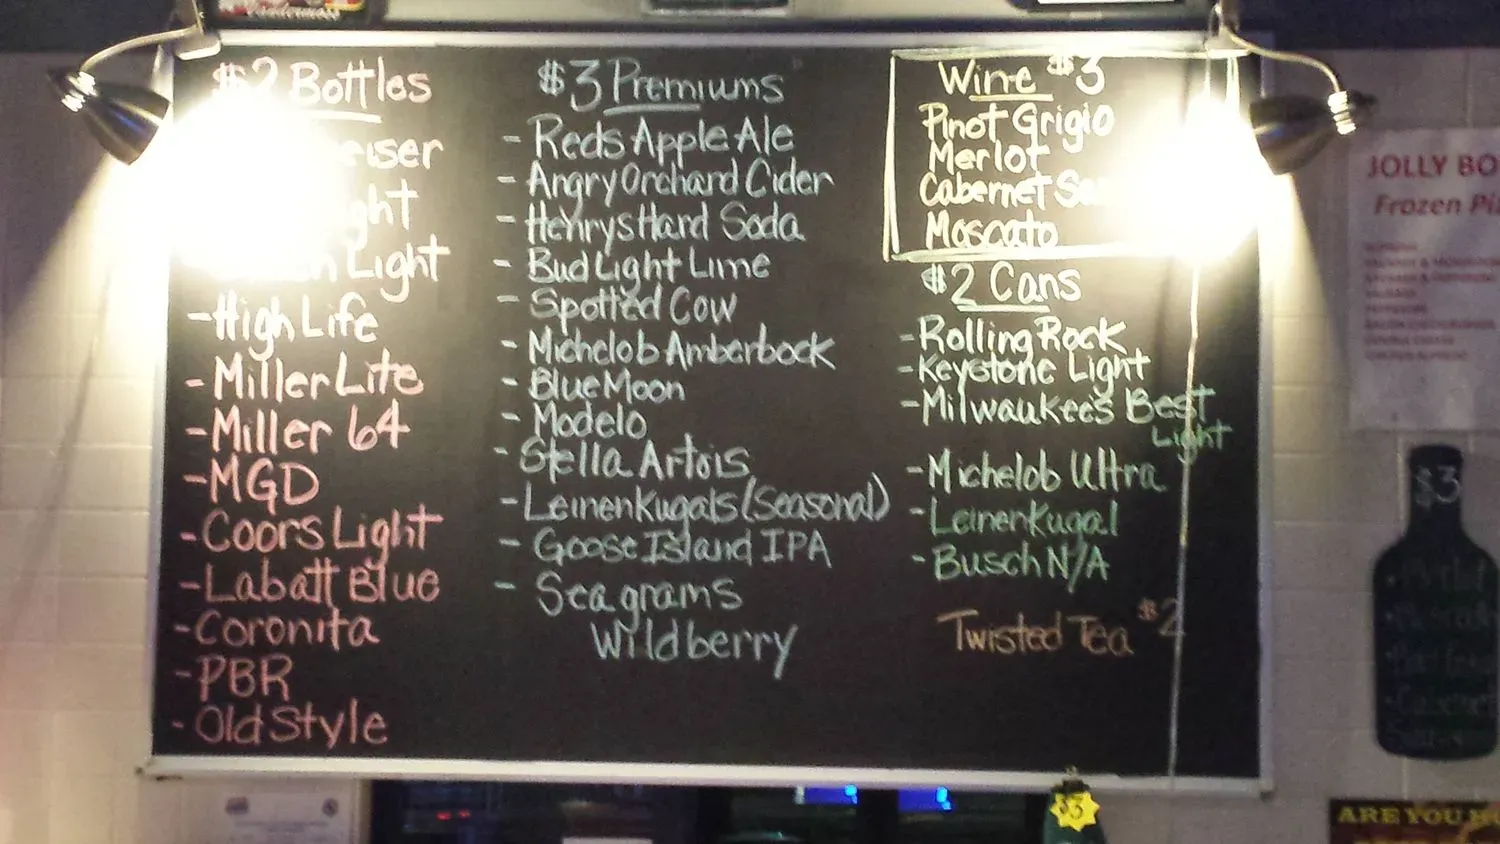 $2 Bottles
eiser
ght
Light
- High Life
- Miller Lite
- Miller 64
- MGD
- Coors Light
- Labatt Blue
- Coronita
- PBR
- Old Style
$3 Premiums
- Reds Apple Ale
- Angry Orchard Cider
- Henrys Hard Soda
- Bud Light Lime
- Spotted Cow
- Michelob Amberbock
- Blue Moon
- Modelo
- Stella Artois
- Leinenkugals (Seasonal)
- Goose Island IPA
- Seagrams
Wildberry
Wine $3
Pinot Grigio
Merlot
Cabernet
Moscato
$2 Cans
- Rolling Rock
- Keystone Light
- Milwaukee's Best
Light
- Michelob Ultra
- Leinenkugal
- Busch N/A
Twisted Tea $2
JOLLY BO
Frozen Piz
$3
$3
ARE YOU